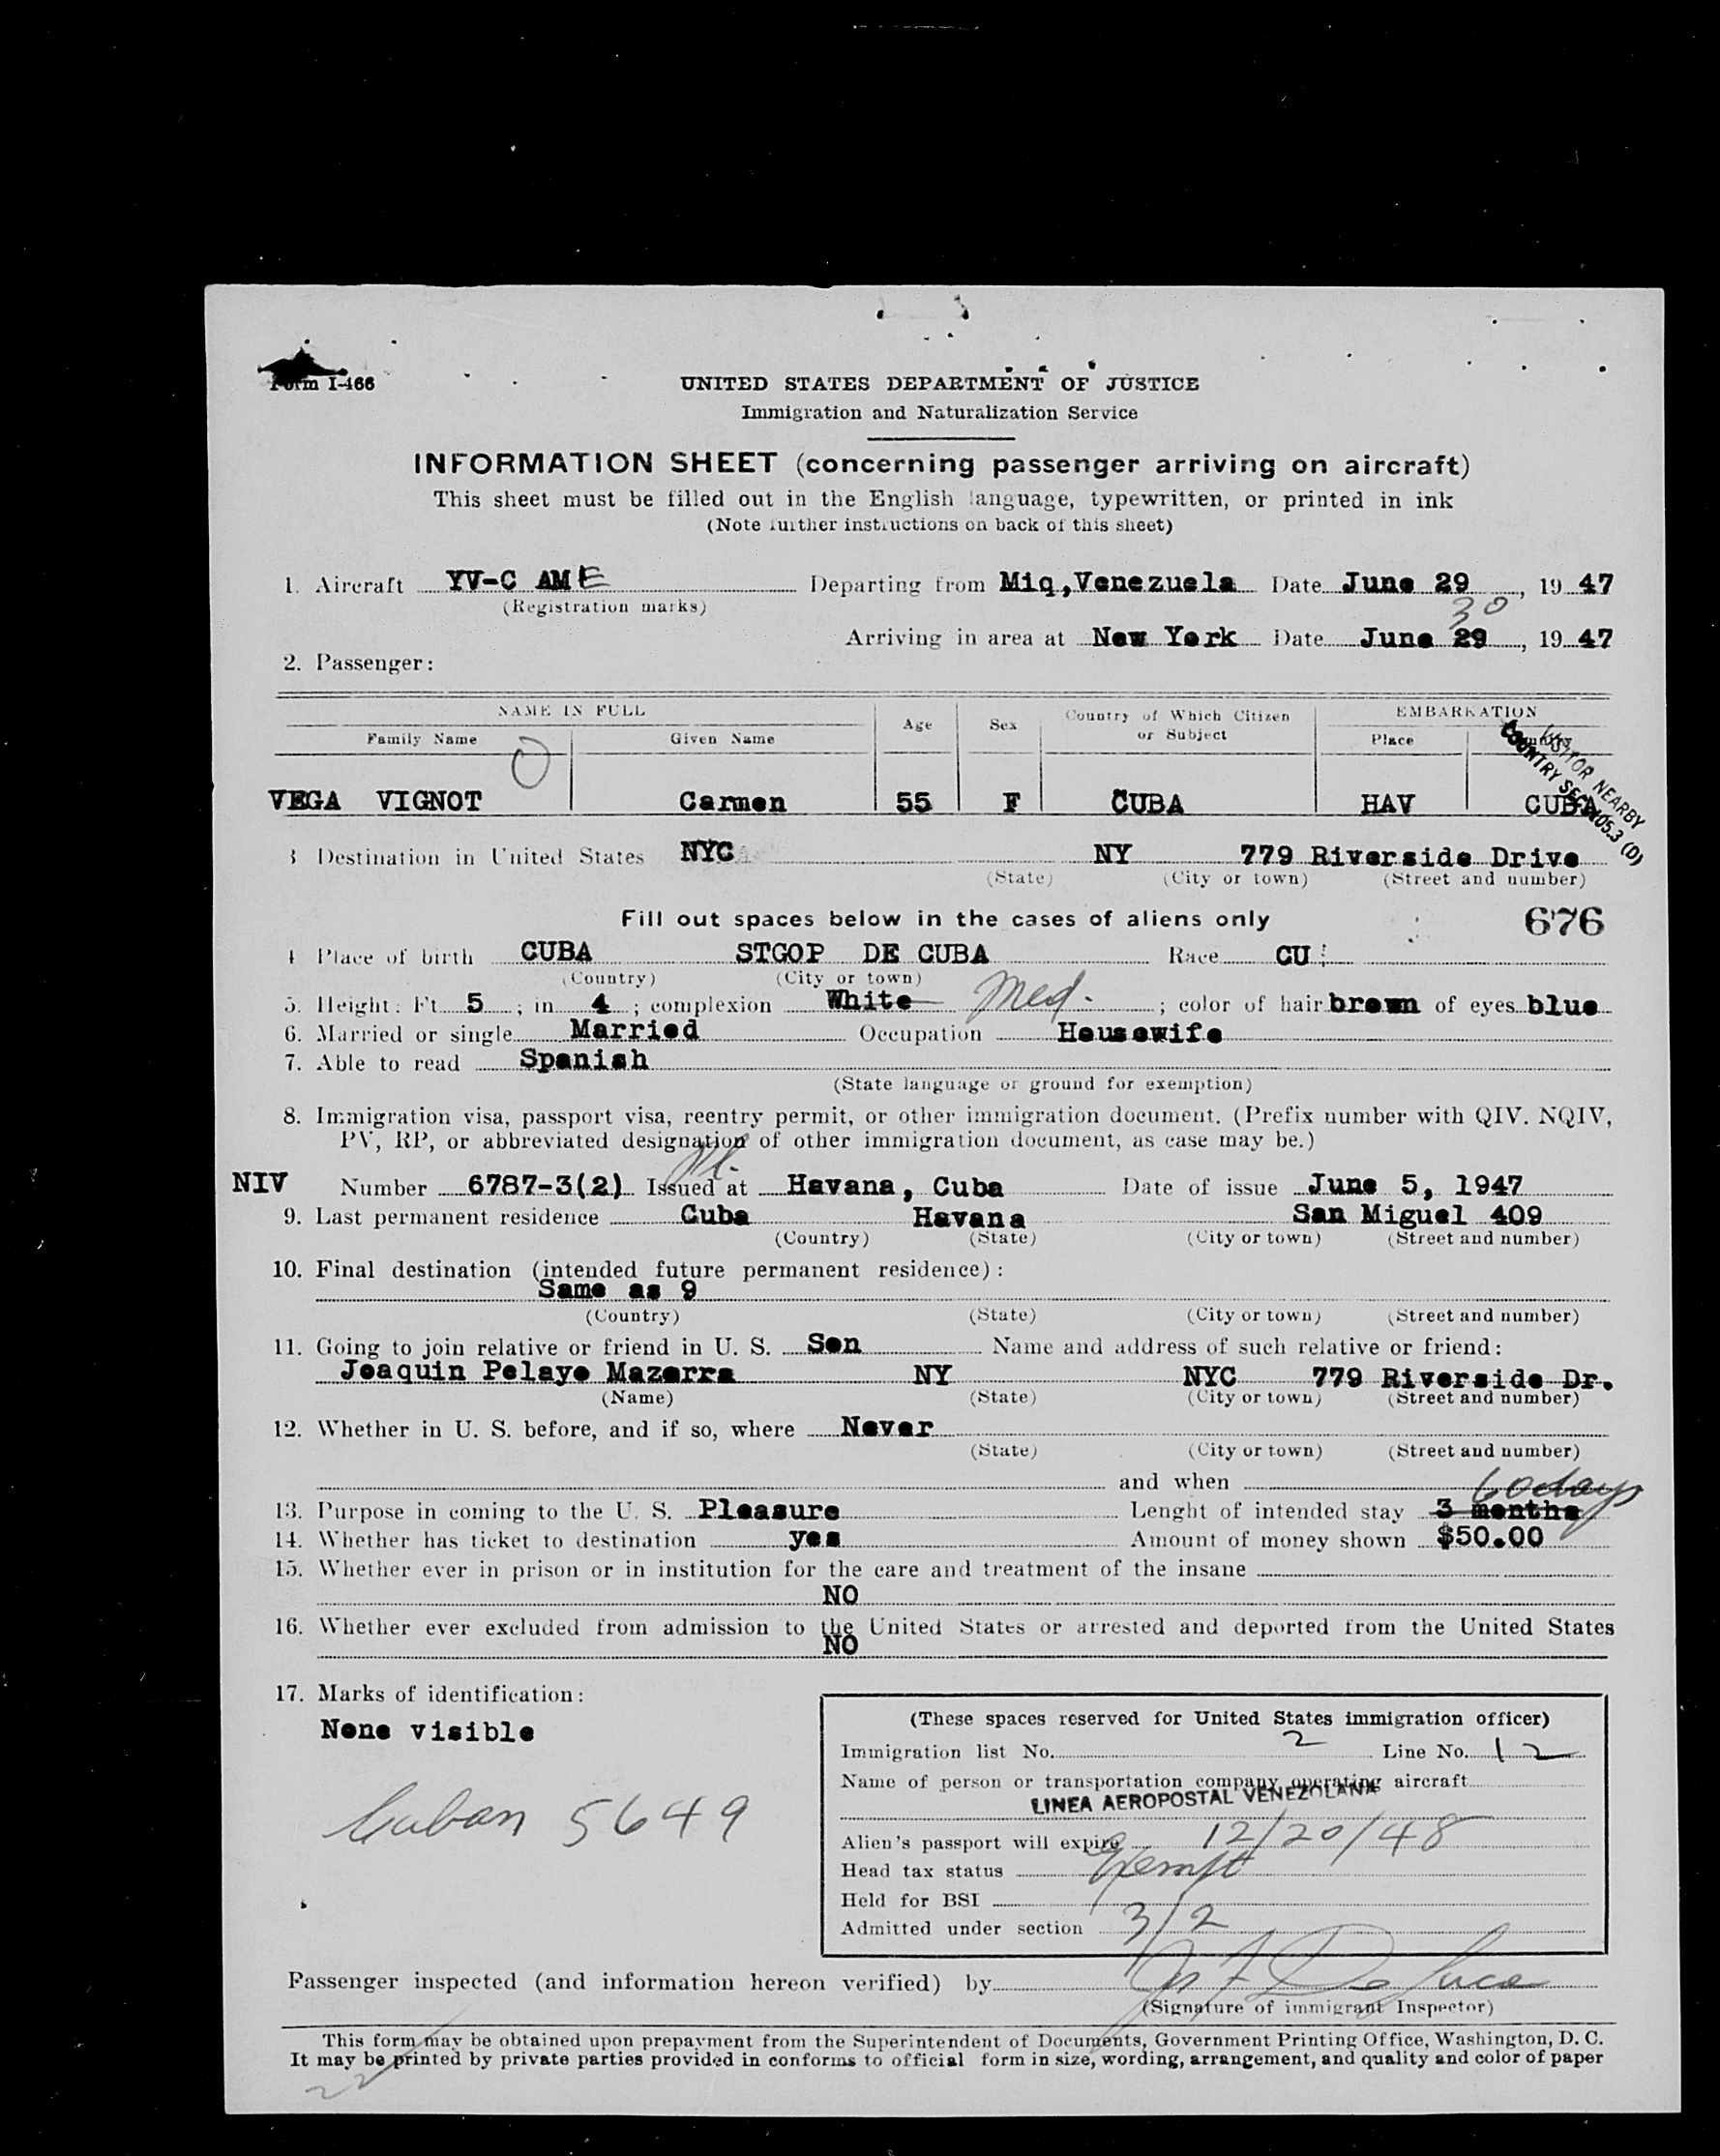 Form I-466
UNITED STATES DEPARTMENT OF JUSTICE
Immigration and Naturalization Service
INFORMATION SHEET (concerning passenger arriving on aircraft)
This sheet must be filled out in the English language, typewritten, or printed in ink
(Note further instructions on back of this sheet)
1. Aircraft YV-C AME Departing from Miq,Venezuela Date June 29, 19 47
(Registration marks)
30
Arriving in area at New York Date June 29, 19 47
2. Passenger:
NAME IN FULL Age Sex Country of Which Citizen or Subject EMBARKATION
Family Name Given Name Place Country
VISITOR NEARBY
COUNTRY SEC. 105.3 (D)
VEGA VIGNOT Carmen 55 F CUBA HAV CUBA
3 Destination in United States NYC NY 779 Riverside Drive
(State) (City or town) (Street and number)
Fill out spaces below in the cases of aliens only 676
4 Place of birth CUBA STGOP DE CUBA Race CU
(Country) (City or town)
5. Height: Ft 5; in 4; complexion White Med.; color of hair brown of eyes blue
6. Married or single Married Occupation Housewife
7. Able to read Spanish
(State language or ground for exemption)
8. Immigration visa, passport visa, reentry permit, or other immigration document. (Prefix number with QIV. NQIV,
PV, RP, or abbreviated designation of other immigration document, as case may be.)
NIV Number 6787-3(2) Issued at Havana, Cuba Date of issue June 5, 1947
9. Last permanent residence Cuba Havana San Miguel 409
(Country) (State) (City or town) (Street and number)
10. Final destination (intended future permanent residence):
Same as 9
(Country) (State) (City or town) (Street and number)
11. Going to join relative or friend in U. S. Son Name and address of such relative or friend:
Joaquin Pelayo Mazorra NY NYC 779 Riverside Dr.
(Name) (State) (City or town) (Street and number)
12. Whether in U. S. before, and if so, where Never
(State) (City or town) (Street and number)
and when
60 days
13. Purpose in coming to the U. S. Pleasure Lenght of intended stay 3 months
14. Whether has ticket to destination yes Amount of money shown $50.00
15. Whether ever in prison or in institution for the care and treatment of the insane
NO
16. Whether ever excluded from admission to the United States or arrested and deported from the United States
NO
17. Marks of identification:
None visible
Cuban 5649
(These spaces reserved for United States immigration officer)
Immigration list No. 2 Line No. 12
Name of person or transportation company operating aircraft
LINEA AEROPOSTAL VENEZOLANA
Alien's passport will expire 12/20/48
Head tax status Exempt
Held for BSI
Admitted under section 3/2
Passenger inspected (and information hereon verified) by De Luca
(Signature of immigrant Inspector)
This form may be obtained upon prepayment from the Superintendent of Documents, Government Printing Office, Washington, D. C.
It may be printed by private parties provided in conforms to official form in size, wording, arrangement, and quality and color of paper